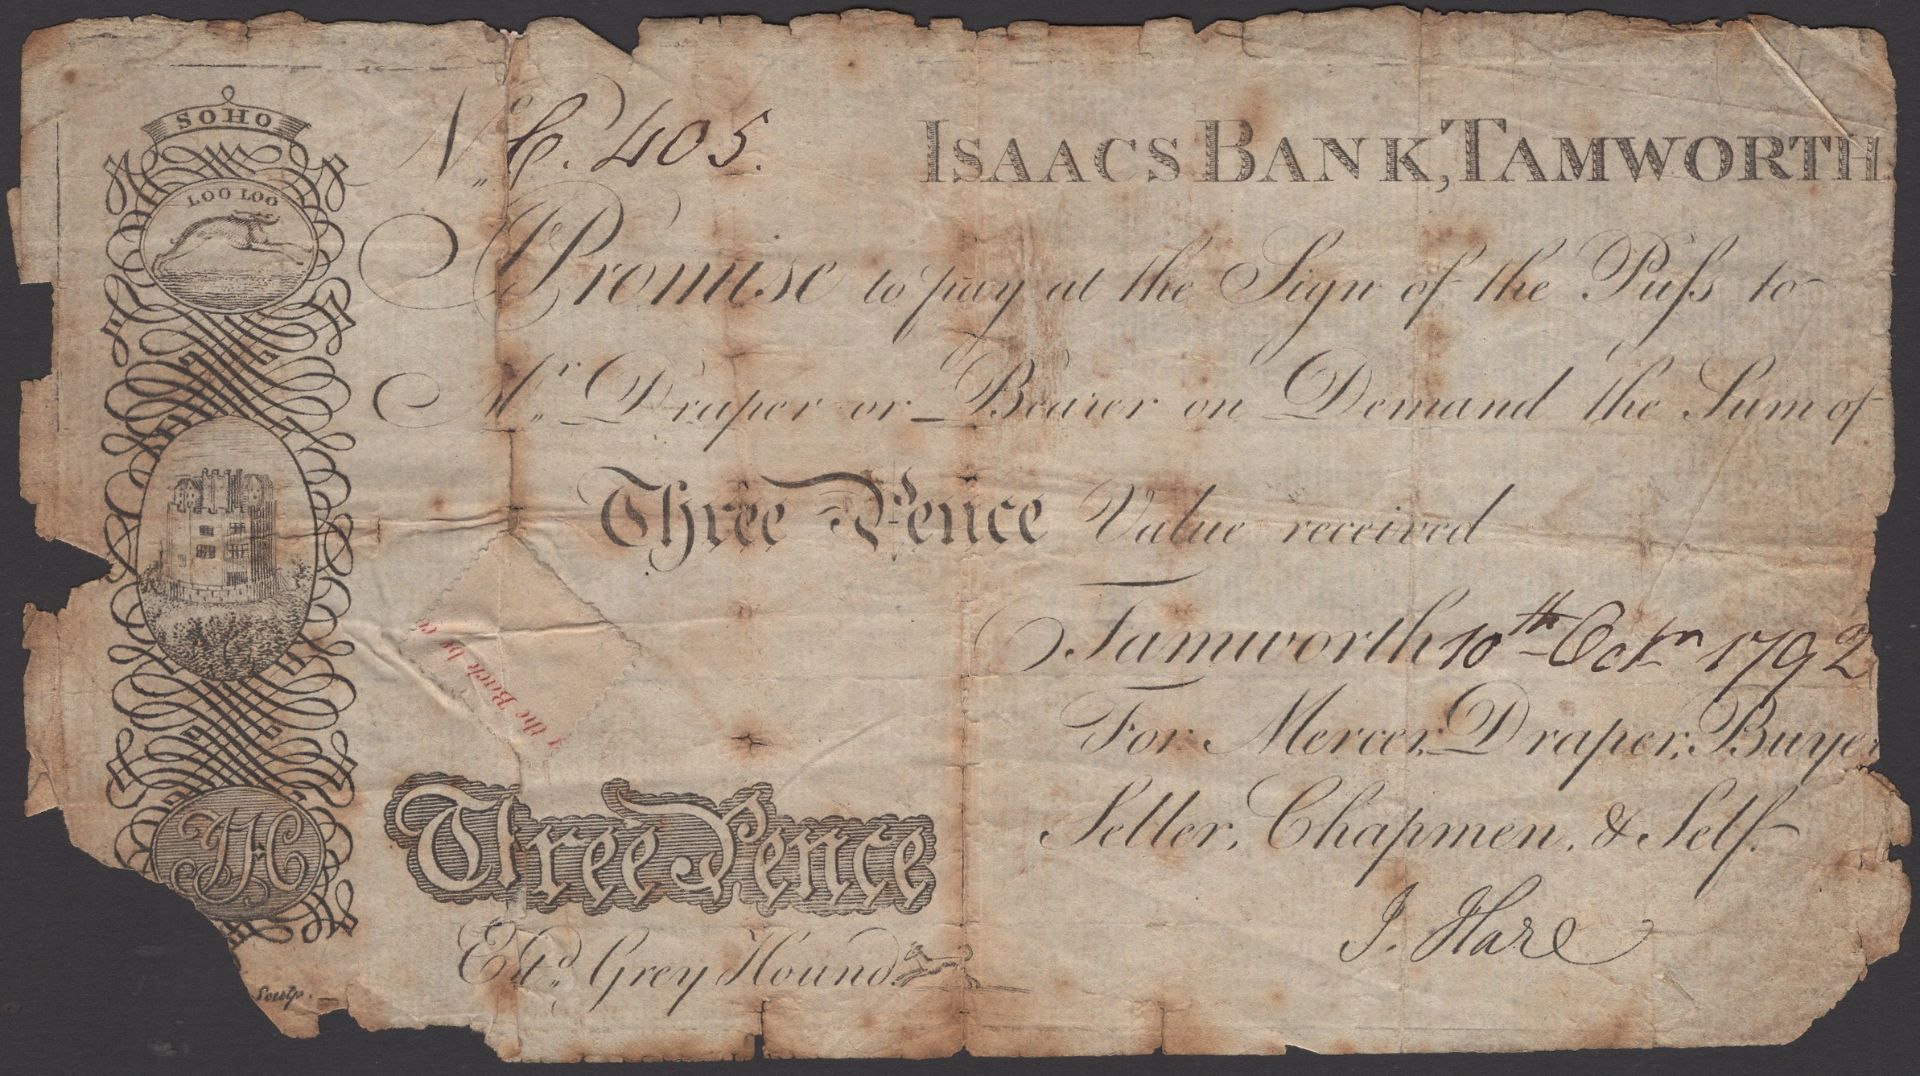 SOHO
LOO LOO
No C. 405.
ISAACS BANK, TAMWORTH
I Promise to pay at the Sign of the Puſs to
Mr. Draper or Bearer on Demand the Sum of
Three Pence Value received
Tamworth 10th Octr 1792
For Mercer, Draper, Buyer
Seller, Chapmen, & Self.
J. Hare
the Back by
JH
Three Pence
Etd. Grey Hound.
Sculp.